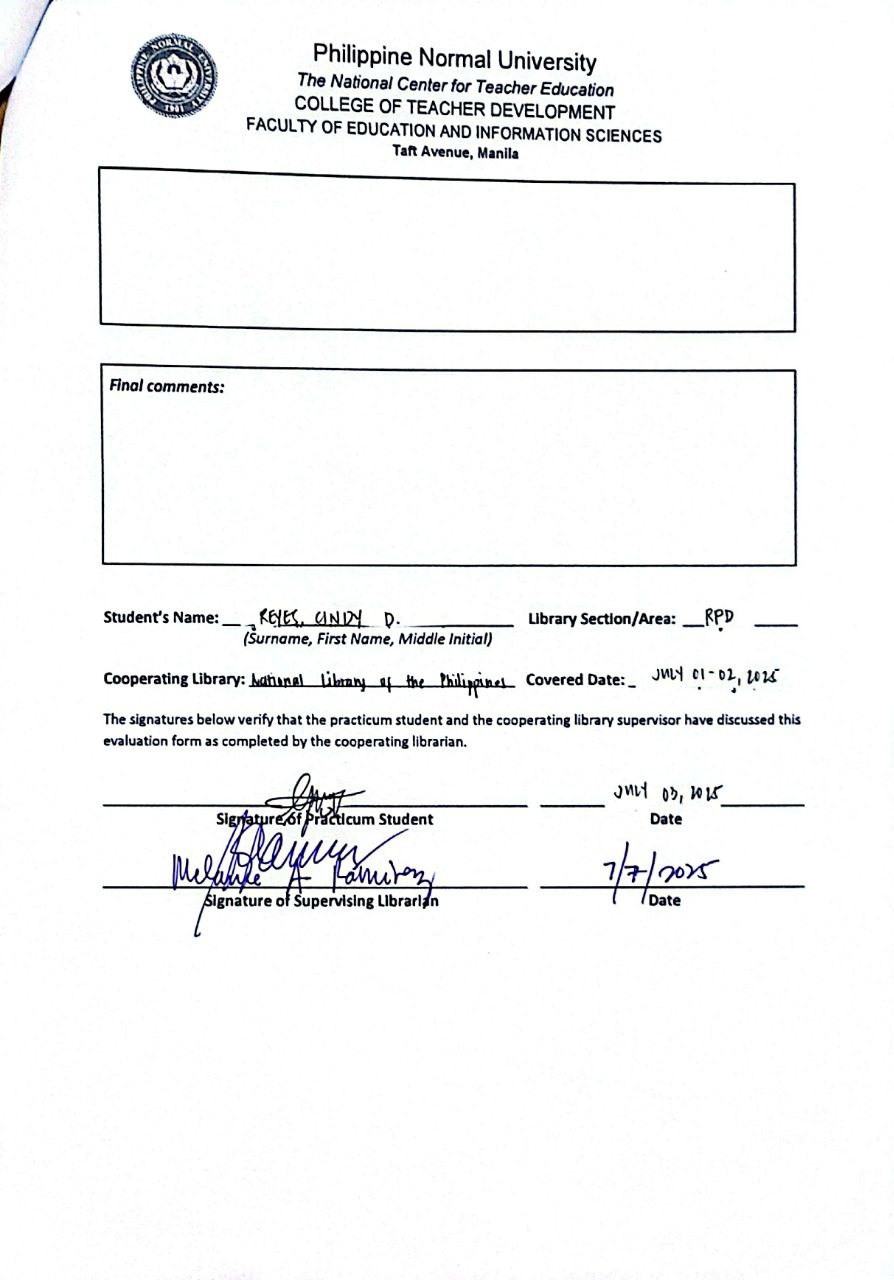 PHILIPPINE NORMAL UNIVERSITY
1901
Philippine Normal University
The National Center for Teacher Education
COLLEGE OF TEACHER DEVELOPMENT
FACULTY OF EDUCATION AND INFORMATION SCIENCES
Taft Avenue, Manila
Final comments:
Student's Name: REYES, CINDY D. Library Section/Area: RPD
(Surname, First Name, Middle Initial)
Cooperating Library: National Library of the Philippines Covered Date: JULY 01-02, 2025
The signatures below verify that the practicum student and the cooperating library supervisor have discussed this
evaluation form as completed by the cooperating librarian.
JULY 03, 2025
Signature of Practicum Student Date
Melanie A Ramirez 7/7/2025
Signature of Supervising Librarian Date